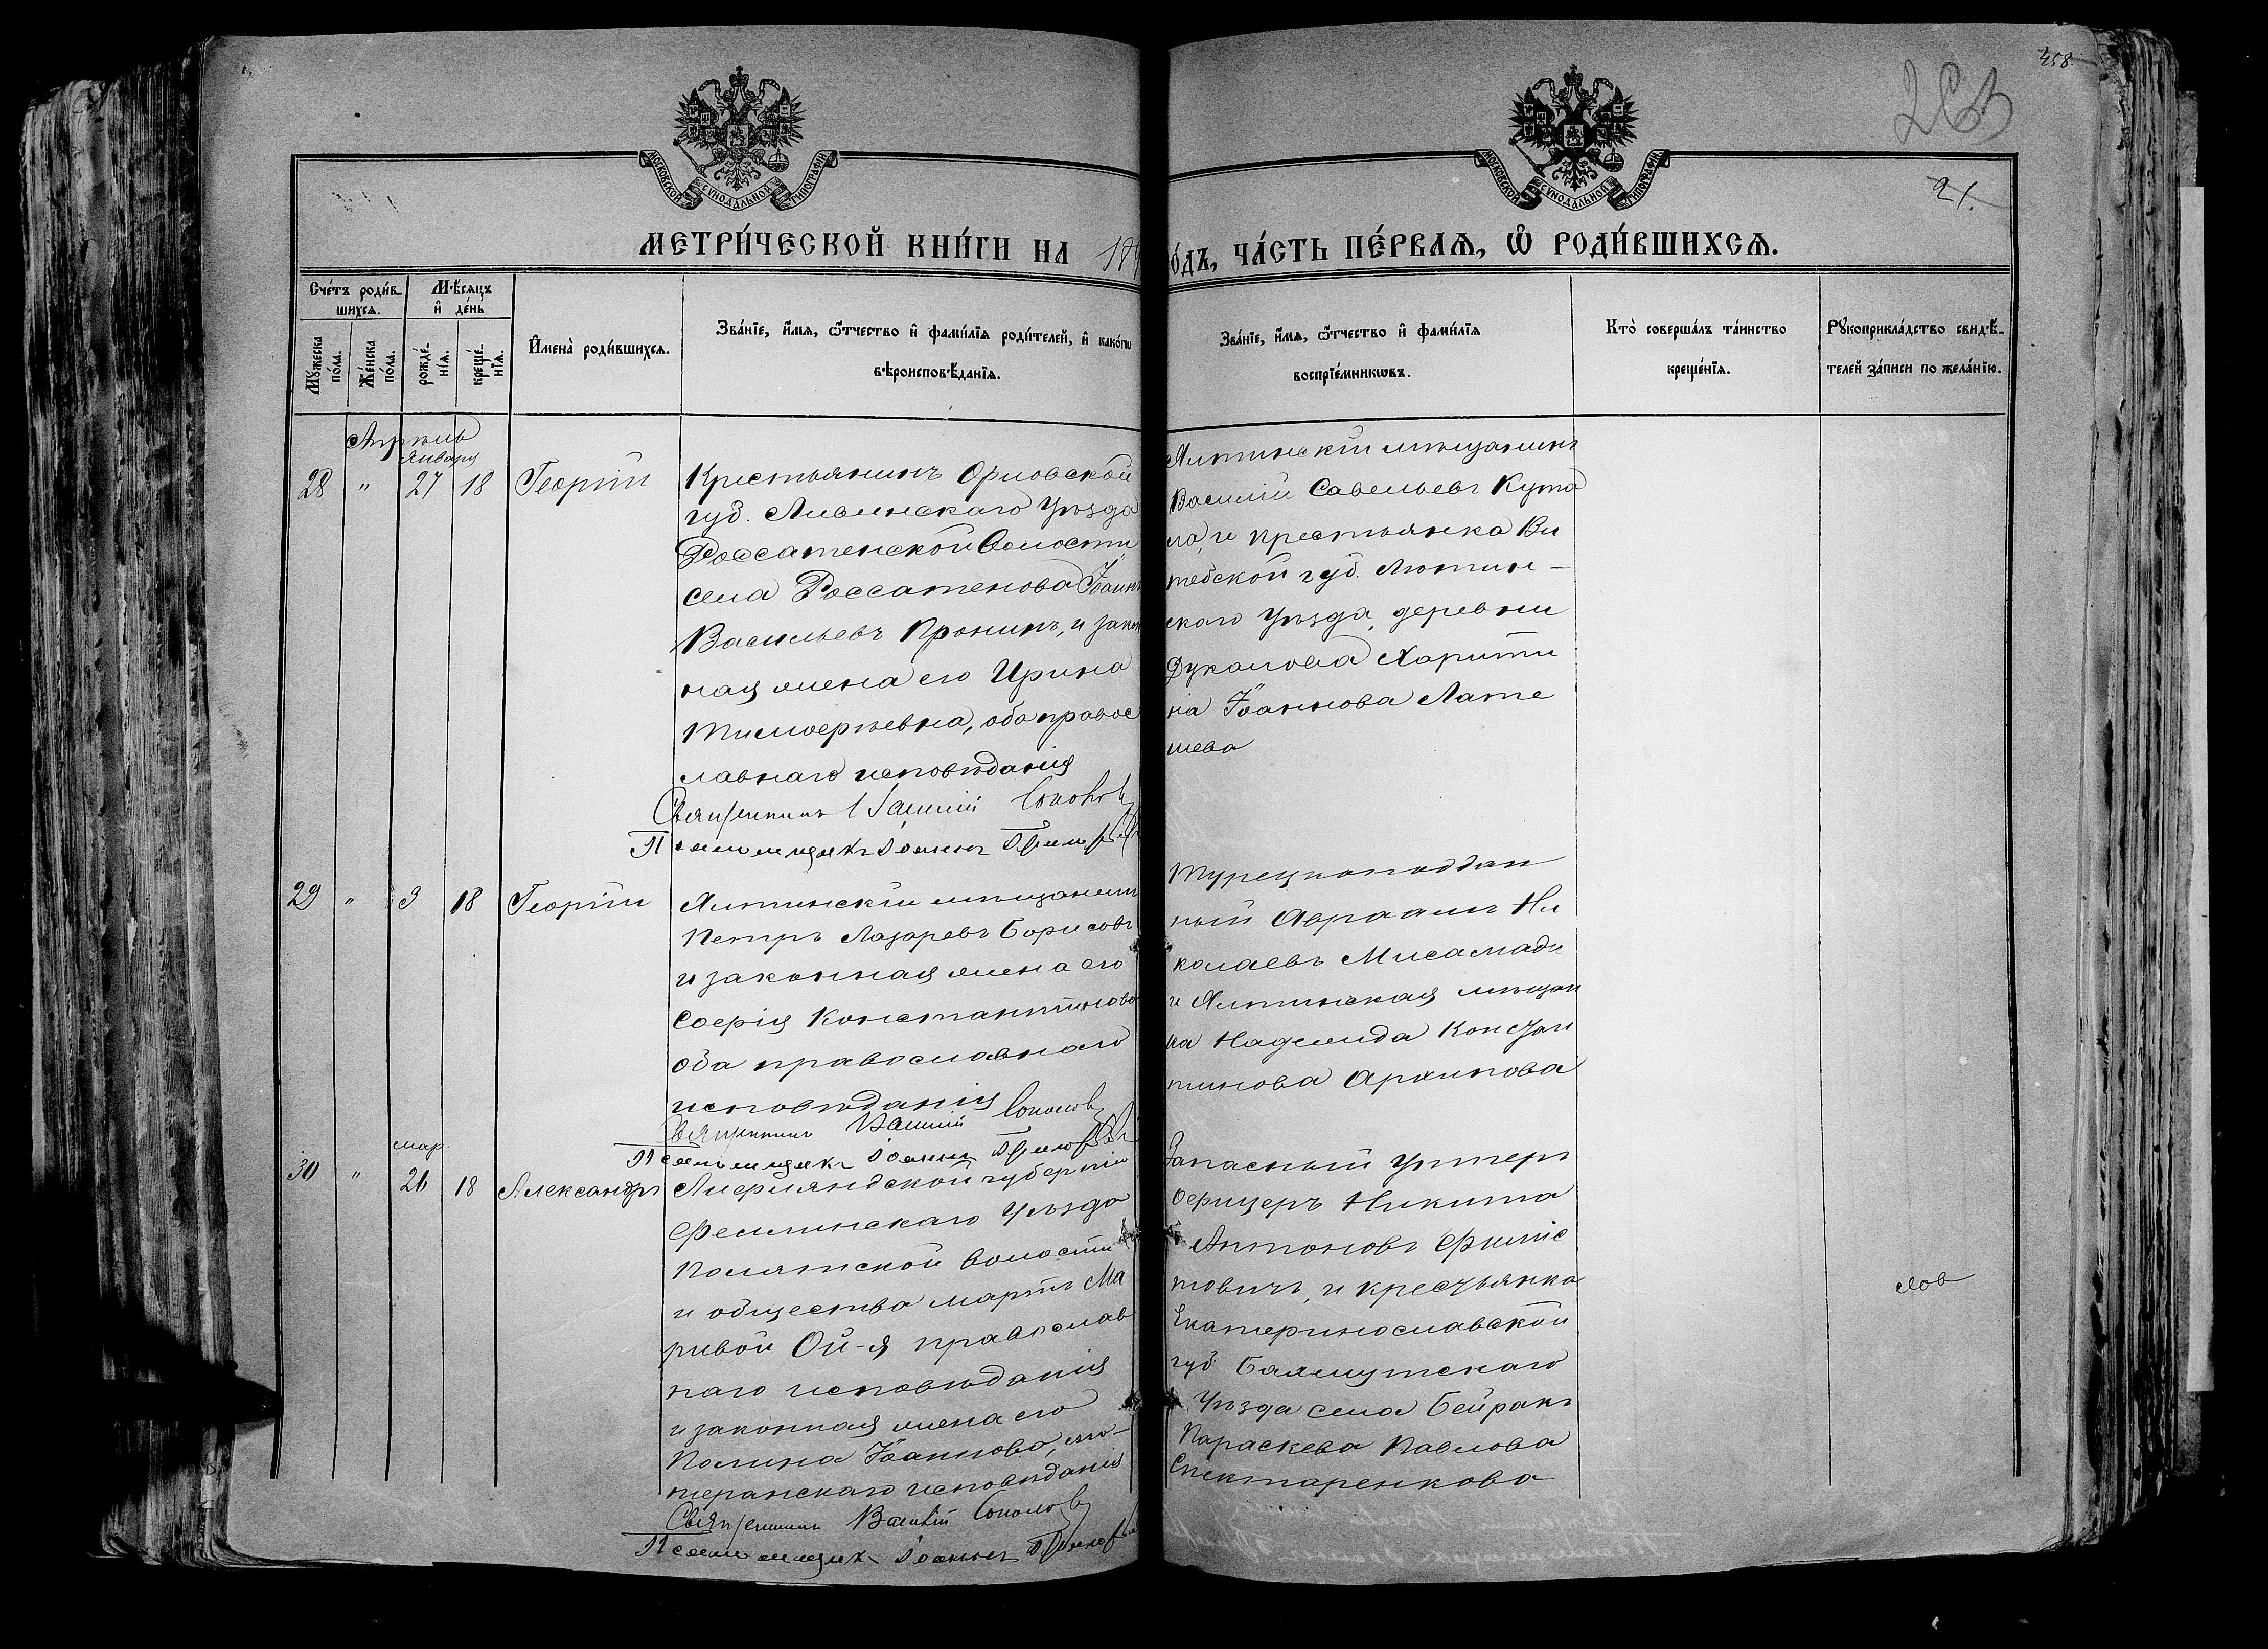 458
21.
МОСКОВСКОЙ СѴНОДАЛЬНОЙ ТИПОГРАФІИ
МОСКОВСКОЙ СѴНОДАЛЬНОЙ ТИПОГРАФІИ
МЕТРИ́ЧЕСКОЙ КНИ́ГИ НА 189
О́ДЪ, ЧА́СТЬ ПЕ́РВАЯ, Ѽ РОДИ́ВШИХСЯ.
Сче́тъ роди́в-
шихся.
Мѣ́сяцъ
и̂ де́нь
Мꙋ́жеска по́ла.
Же́нска по́ла.
рожде́-нїя.
креще́-нїя.
И̂мена̀ роди́вшихся.
Зва́нїе, и̂́мя, ѻ҆́тчество и̂ фами́лїя роди́телей, и̂ како́гѡ
вѣроисповѣ́данїя.
Зва́нїе, и̂́мя, ѻ҆́тчество и̂ фами́лїя
воспрїе́мникѡвъ.
Кто̀ соверша́лъ та́инство
креще́нїя.
Рꙋкоприкла́дство свидѣ́-
телей за́писи по жела́нїю.
Апрель
Января
28 " 27 18 Георгій
Крестьянинъ Орловской
губ. Ливенскаго Уѣзда
Россатенской Волости
села Россатенова Іоаннъ
Васильевъ Пронинъ, и закон
ная жена его Ирина
Тимоѳеевна, оба правос
лавнаго исповѣданія
Священникъ Василій Соколовъ
Псаломщикъ Іоаннъ
Ялтинскій мѣщанинъ
Василій Савельевъ Кута
ло, и крестьянка Ви
тебской губ. Лютин-
скаго Уѣзда, деревни
Дукалова Харити
на Іоаннова Лате
шева
29 " 3 18 Георгій
Ялтинскій мѣщанинъ
Петръ Лазаревъ Борисовъ
и законная жена его
Софія Константинова
оба православнаго
исповѣданія
Священникъ Василій Соколовъ
Псаломщикъ Іоаннъ
Турецкоподдан
ный Авраамъ Ни
колаевъ Мисамади
и Ялтинская мѣщан
ка Надежда Констан
тинова Архипова
мар.
30 " 26 18 Александръ
Лифляндской губерніи
Феллинскаго Уѣзда
волости
и общества Мартъ Ма
ривой Ой-я православ
наго исповѣданія
и законная жена его
Полина Іоаннова, лю-
теранскаго исповѣданія
Священникъ Василій Соколовъ
Псаломщикъ Іоаннъ
Запасный Унтеръ
офицеръ Никита
Антоновъ Филис
товичъ, и крестьянка
Екатеринославской
губ Бахмутскаго
Уѣзда села Бейракъ
Параскева Павлова
Снектаренкова
лов